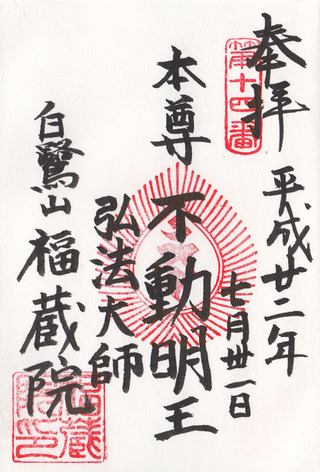 奉拝
第十四番
平成廿二年
七月丗一日
本尊
不動明王
弘法大師
白鷺山
福蔵院
福蔵院印